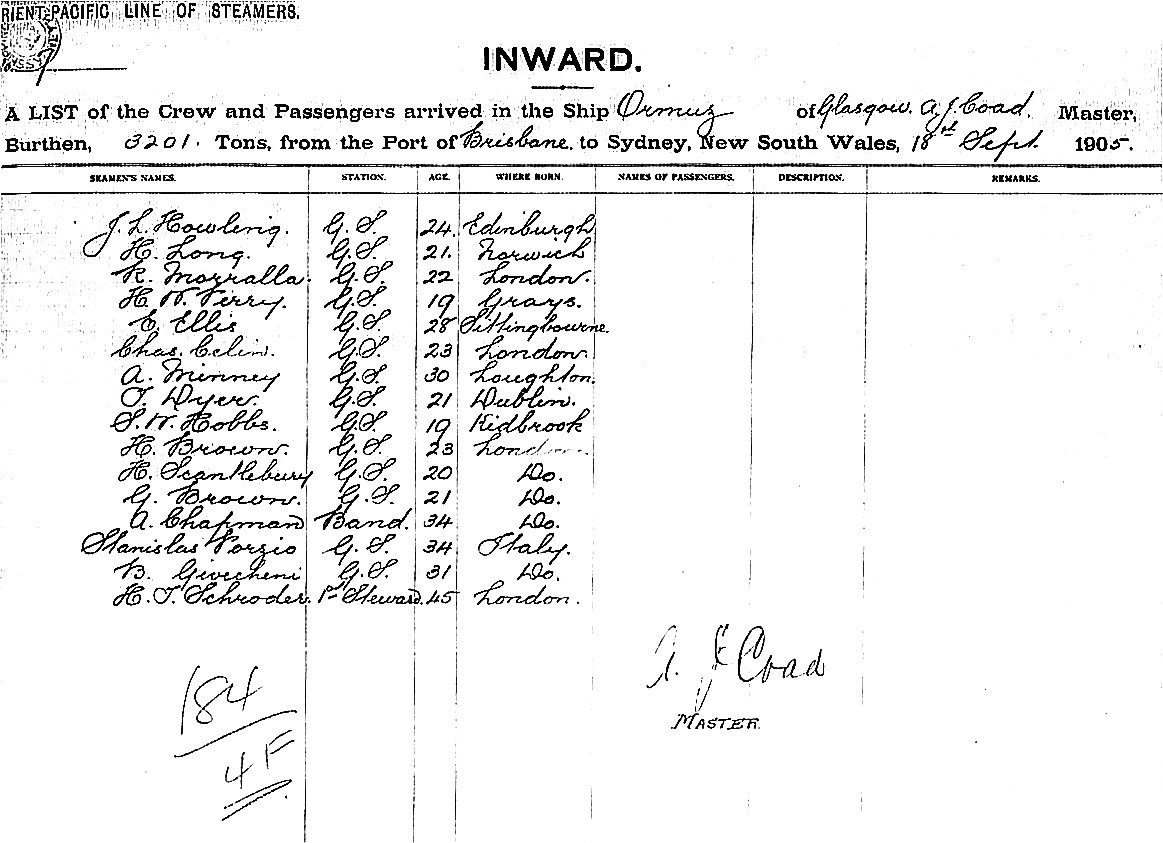 RIENT-PACIFIC LINE OF STEAMERS.
INWARD.
A LIST of the Crew and Passengers arrived in the Ship Ormuz of Glasgow. A. J. Coad. Master,
Burthen, 3201. Tons, from the Port of Brisbane. to Sydney, New South Wales, 18th Sept. 1905.
SEAMEN'S NAMES. STATION. AGE. WHERE BORN. NAMES OF PASSENGERS. DESCRIPTION. REMARKS.
J. L. Howling. G.S. 24. Edinburgh
H. Long. G.S. 21. Norwich
R. Mozralla. G.S. 22 London.
H. W. Perry. G.S. 19 Grays.
E. Ellis G.S. 28 Sittingbourne.
Chas. Celin. G.S. 23 London.
A. Minney G.S. 30 Loughton.
T. Dyer. G.S. 21 Dublin.
S. W. Hobbs. G.S. 19 Kidbrook
H. Brown. G.S. 23 London.
H. Scantlebury G.S. 20 Do.
G. Brown. G.S. 21 Do.
A. Chapman Band. 34 Do.
Stanislas Porzio G.S. 34 Italy.
B. G.S. 31 Do.
H. T. Schroder. Steward. 45 London.
A. J. Coad
MASTER.
184
4F